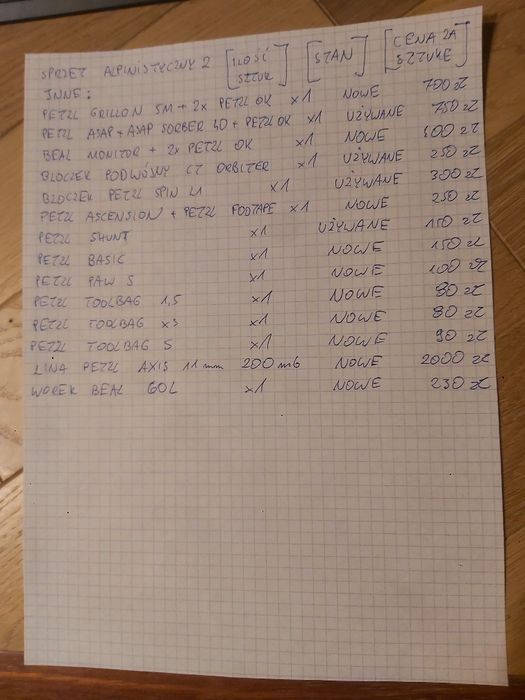 SPRZĘT ALPINISTYCZNY 2 [ILOŚĆ SZTUK] [STAN] [CENA ZA SZTUKĘ]
INNE:
PETZL GRILLON 5M + 2x PETZL OK x1 NOWE 700 zł
PETZL ASAP + ASAP SORBER 40 + PETZL OK x1 UŻYWANE 750 zł
BEAL MONITOR + 2x PETZL OK x1 NOWE 600 zł
BLOCZEK PODWÓJNY CT ORBITER x1 UŻYWANE 250 zł
BLOCZEK PETZL SPIN L1 x1 UŻYWANE 300 zł
PETZL ASCENSION + PETZL FOOTAPE x1 NOWE 250 zł
PETZL SHUNT x1 UŻYWANE 150 zł
PETZL BASIC x1 NOWE 150 zł
PETZL PAW S x1 NOWE 100 zł
PETZL TOOLBAG 1,5 x1 NOWE 90 zł
PETZL TOOLBAG xs x1 NOWE 80 zł
PETZL TOOLBAG S x1 NOWE 90 zł
LINA PETZL AXIS 11 mm 200 mb NOWE 2000 zł
WOREK BEAL 60L x1 NOWE 230 zł